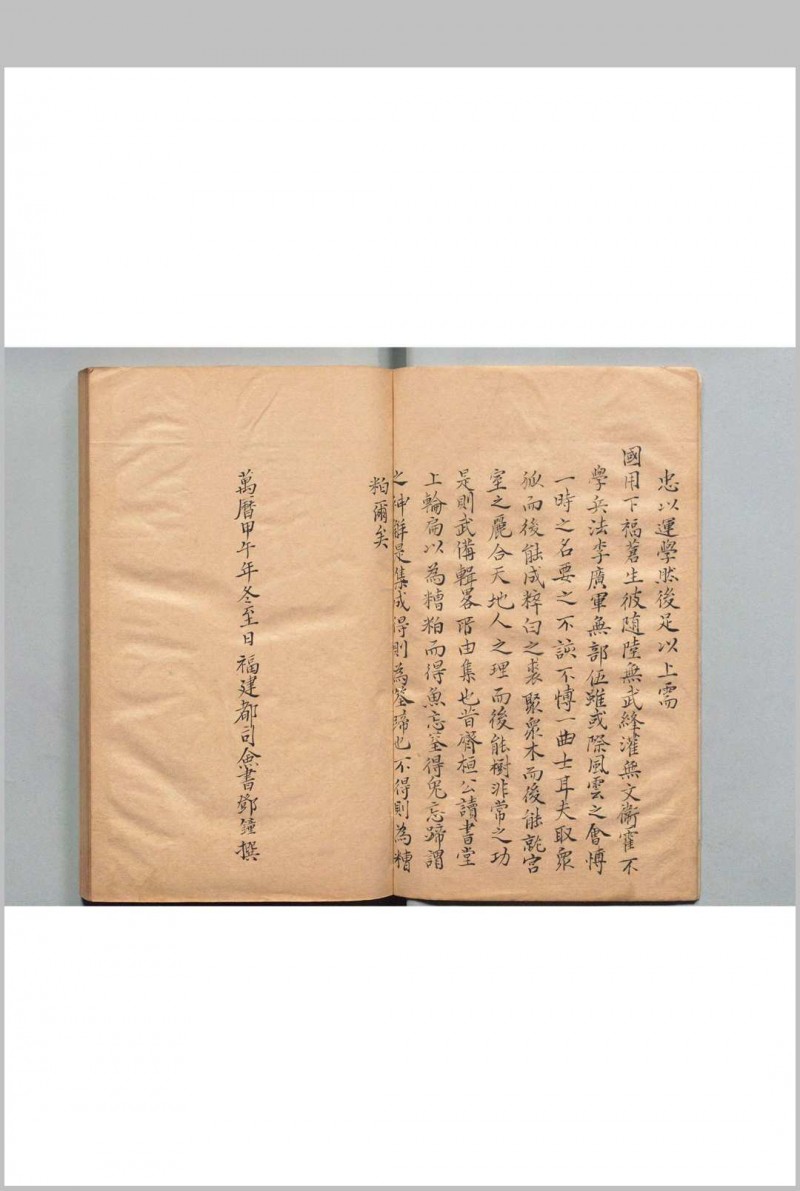 忠以運學然後足以上需
國用下福蒼生彼随陸無武絳灌無文衛霍不
學兵法李廣軍無部伍雖或際風雲之會博
一時之名要之不談不博一曲士耳夫取衆
狐而後能成粹白之裘聚衆木而後能就宮
室之麗合天地人之理而後能樹非常之功
是則武備輯畧所由集也昔齊桓公讀書堂
上輪扁以為糟粕而得魚忘筌得兔忘蹄謂
之神解是集成得則為筌蹄也不得則為糟
粕爾矣
萬曆甲午年冬至日福建都司僉書鄧鐘撰